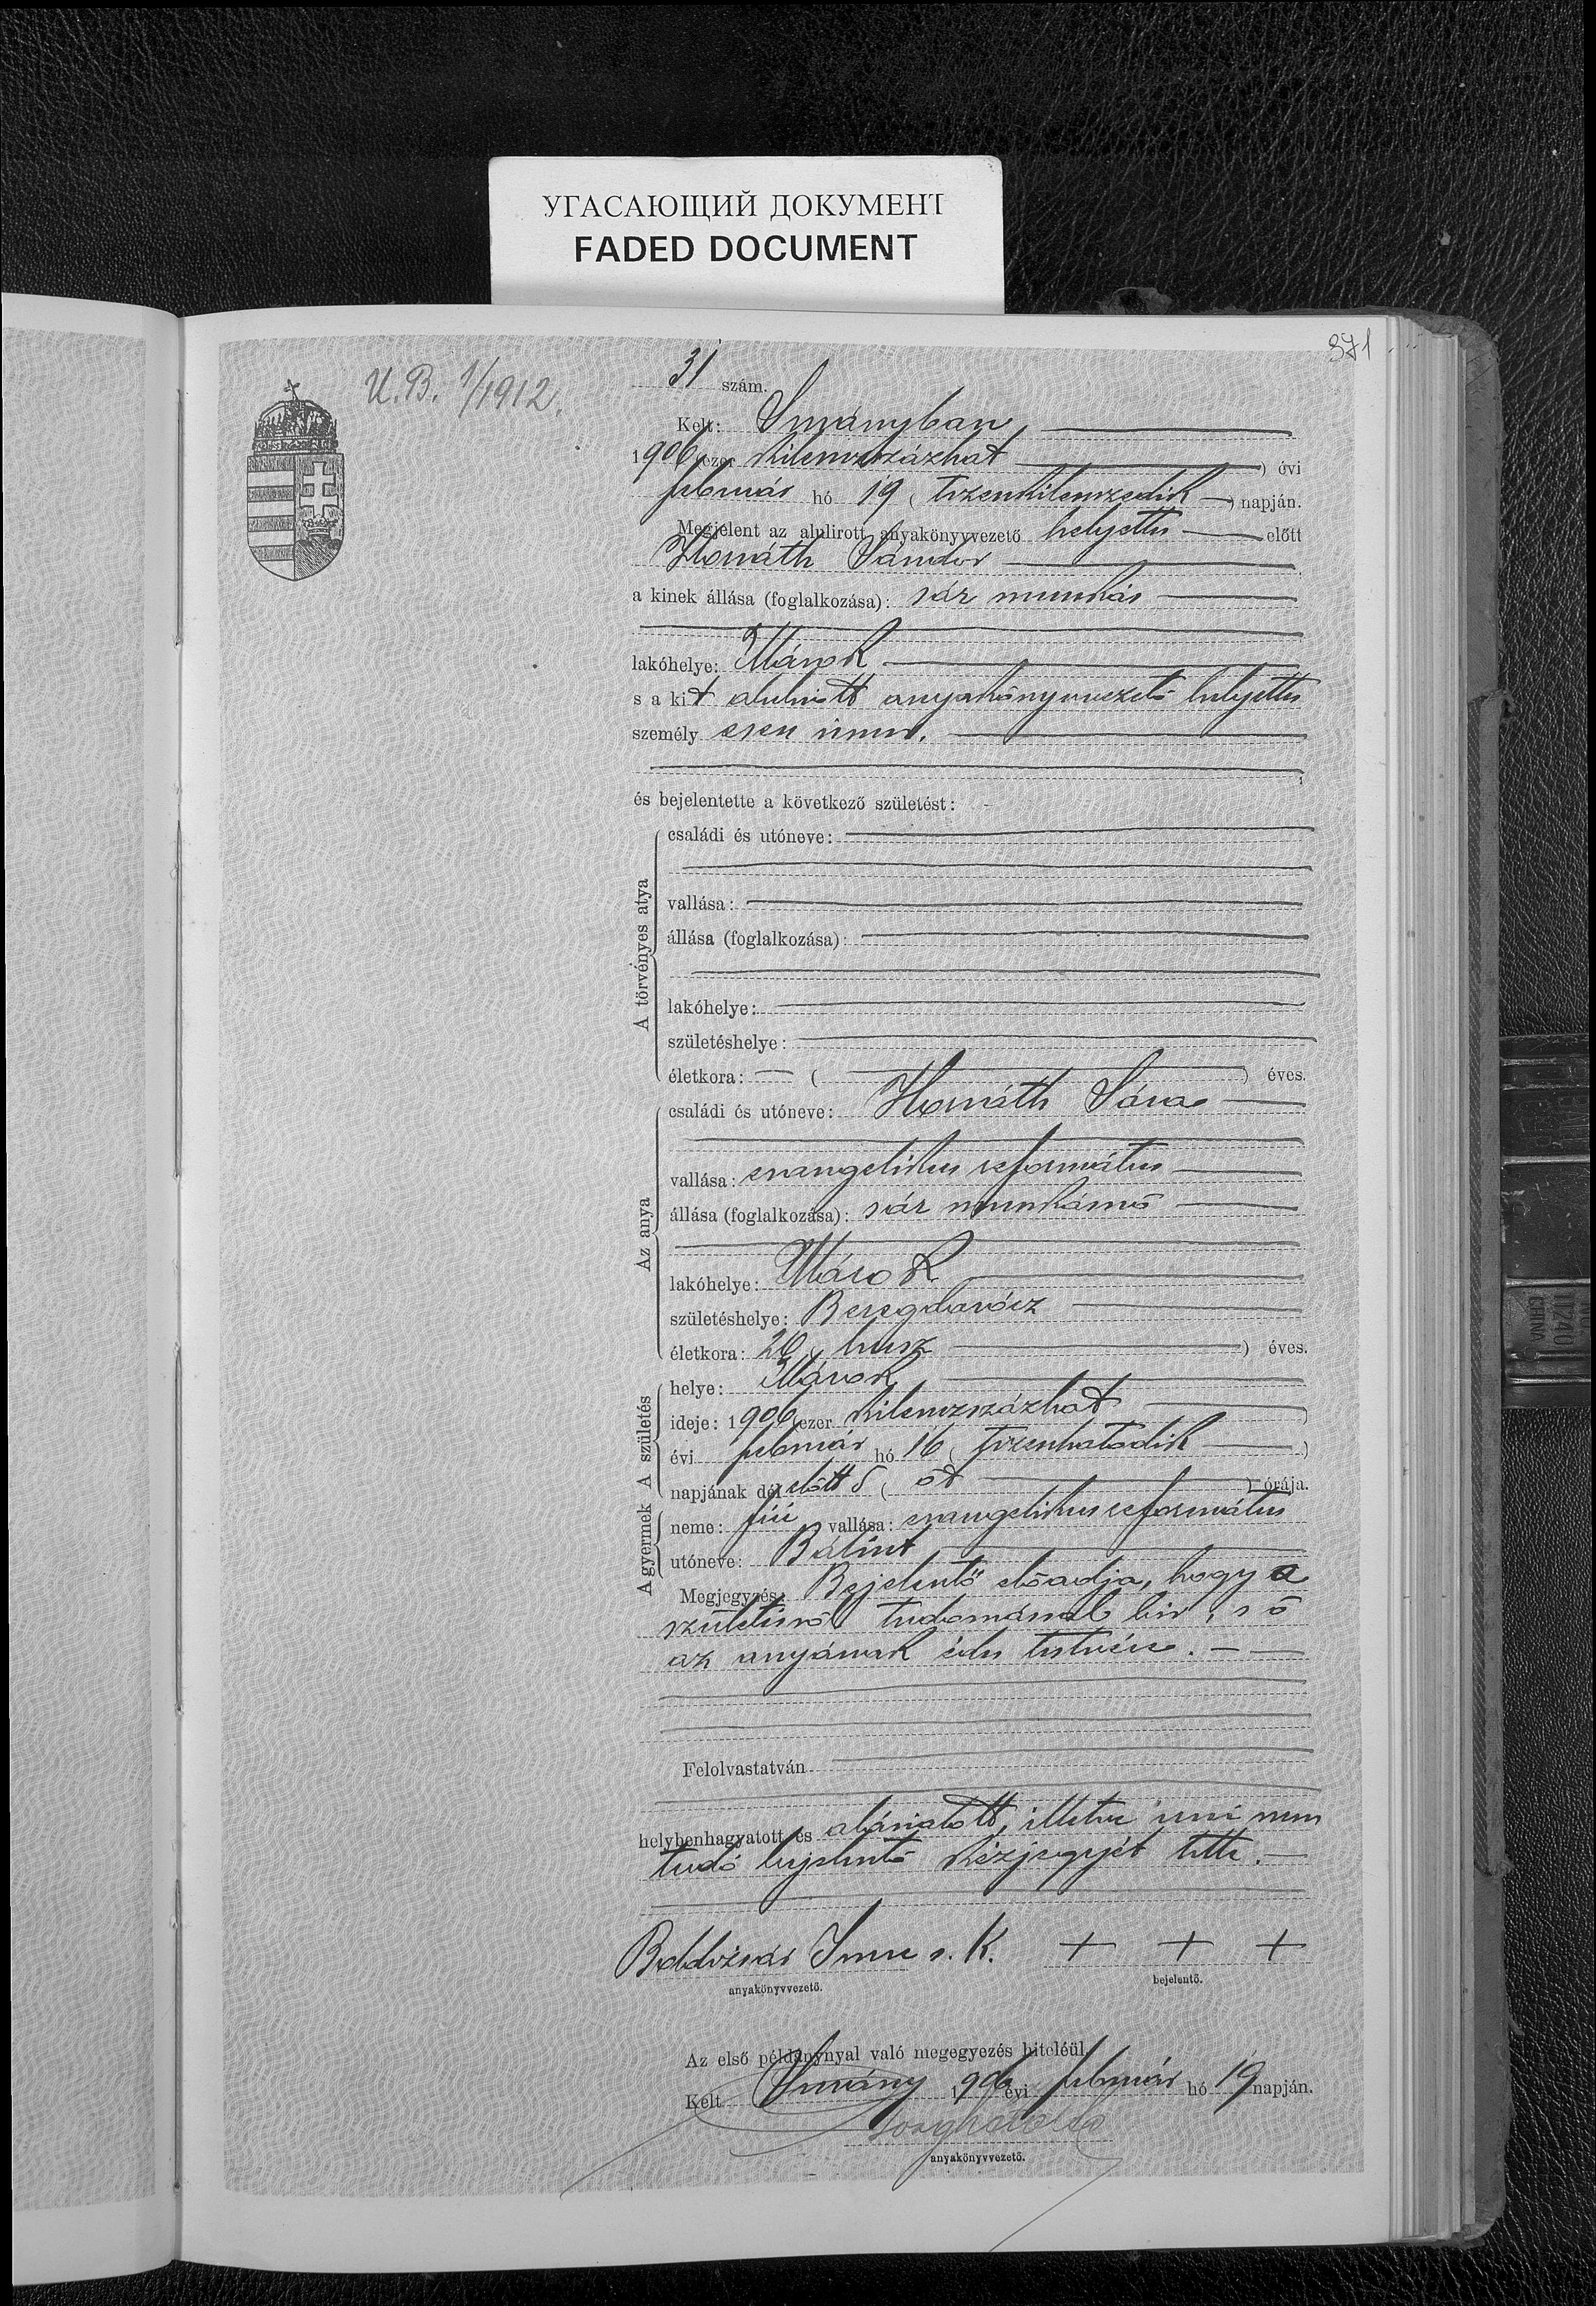 УГАСАЮЩИЙ ДОКУМЕНТ
FADED DOCUMENT
371
U. B. 1/1912.
31 szám.
Kelt: Surányban
1906 (ezer kilenczszázhat) évi
február hó 19 (tizenkilenczedik) napján.
Megjelent az alulirott anyakönyvvezető helyettes előtt
Horváth Sándor
a kinek állása (foglalkozása): sár munkás
lakóhelye: Márok
s a kit alulirott anyakönyvvezető helyettes
személyesen ismer.
és bejelentette a következő születést:
A törvényes atya
családi és utóneve:
vallása:
állása (foglalkozása):
lakóhelye:
születéshelye:
életkora: ( ) éves.
Az anya
családi és utóneve: Horváth Sára
vallása: evangelikus református
állása (foglalkozása): sár munkásnő
lakóhelye: Márok
születéshelye: Beregdarócz
életkora: 20 (husz) éves.
A születés
helye: Márok
ideje: 1906 (ezer kilenczszázhat)
évi február hó 16 (tizenhatodik)
napjának délelőtt 5 (öt) órája.
A gyermek
neme: fiú vallása: evangelikus református
utóneve: Bálint
Megjegyzés: Bejelentő előadja, hogy a
születésről tudomással bir, s ő
az anyának édes testvére.
Felolvastatván
helybenhagyatott és aláiratott, illetve irni nem
tudó bejelentő kézjegyét tette.
Imre s. k. + + +
anyakönyvvezető. bejelentő.
Az első példánynyal való megegyezés hiteléül.
Kelt Surány 1906 évi február hó 19 napján.
anyakönyvvezető.